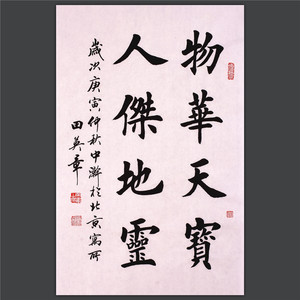 物華天寶
人傑地靈
歲次庚寅仲秋中澣於北京寓所
田英章